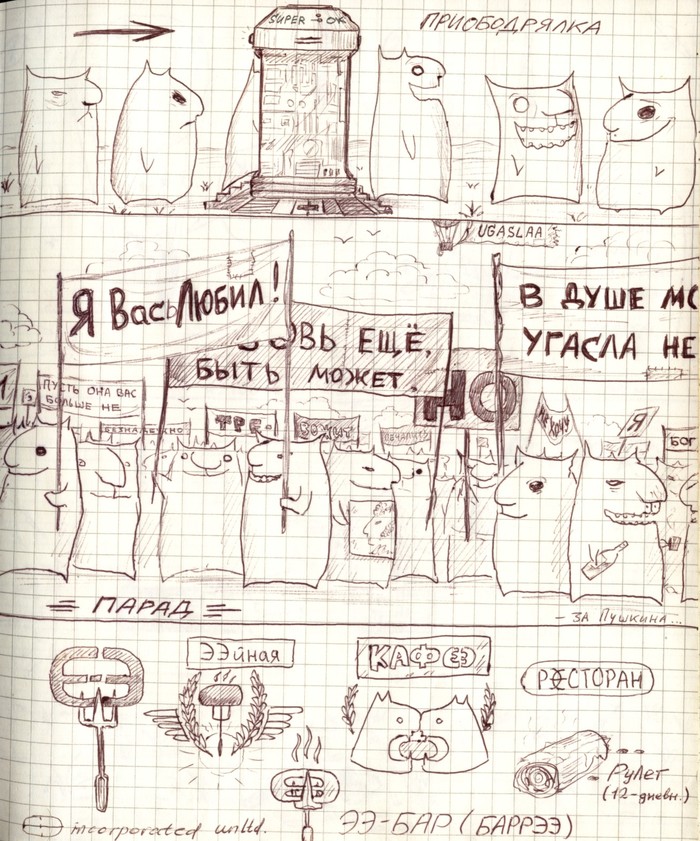 ПРИОБОДРЯЛКА
SUPER OK
UGASLAA
Я Вас Любил!
ОВЬ ЕЩЁ,
БЫТЬ МОЖЕТ
В ДУШЕ МО
УГАСЛА НЕ
ПУСТЬ ОНА ВАС
БОЛЬШЕ НЕ
НО
НЕ ХОЧУ
Я
БОГ
ТРЕ-
ПЕЧАЛИТЬ
= ПАРАД =
- ЗА ПУШКИНА...
ЭЭйная
КАФЭЭ
РЭСТОРАН
Рулет
(12-дневн.)
incorporated unltd.
ЭЭ-БАР (БАРРЭЭ)